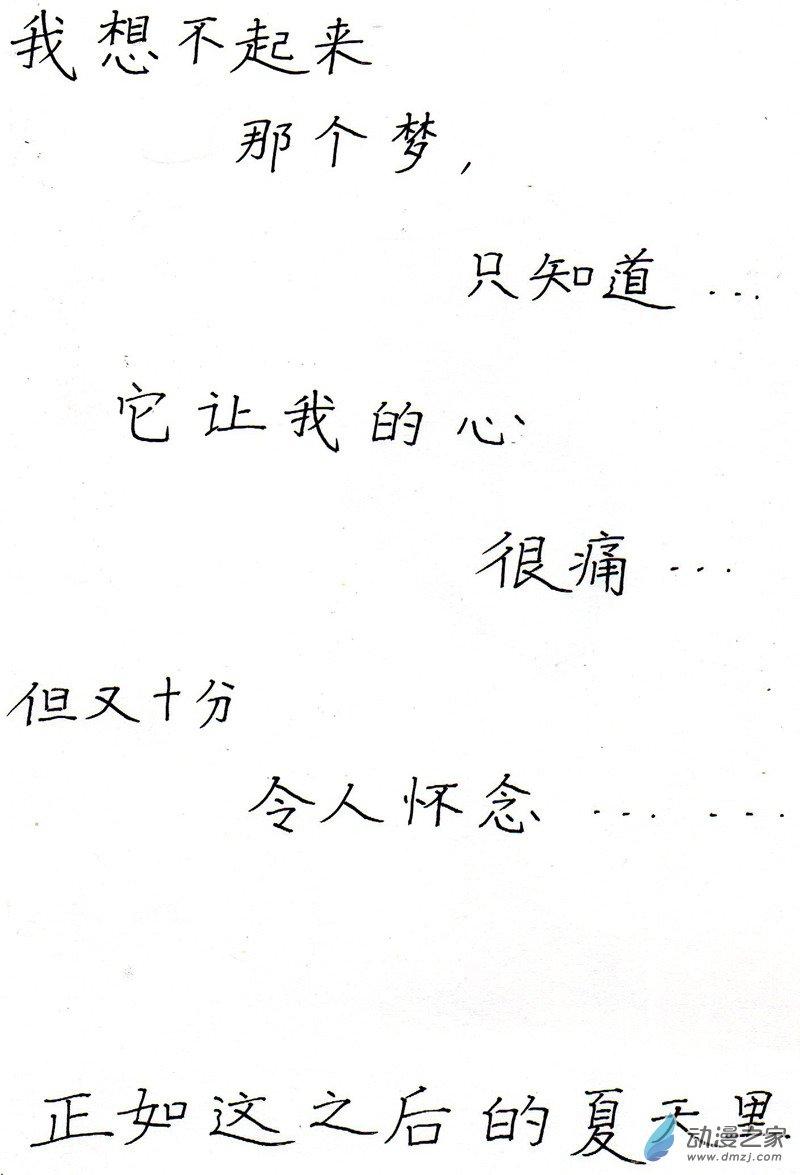 我想不起来
那个梦,
只知道...
它让我的心
很痛...
但又十分
令人怀念... ...
正如这之后的夏天里
动漫之家
www.dmzj.com